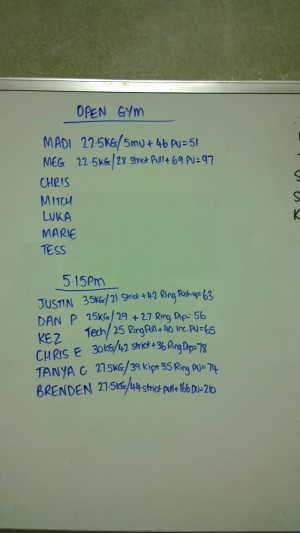 OPEN GYM
MADI 22.5KG/5MU + 46 PU=51
MEG 22.5KG/28 Strict Pull + 69 PU=97
CHRIS
MITCH
LUKA
MARIE
TESS
5.15pm
JUSTIN 35KG/21 Strict +42 Ring Push-up=63
DAN P 25KG/29 +27 Ring Dip=56
KEZ Tech/25 Ring Pull + 40 Inc. PU=65
CHRIS E 30KG/42 strict+36 Ring Dip=78
TANYA C 27.5KG/39 Kip+35 Ring PU=74
BRENDEN 27.5KG/44 strict pull+166 PU=210
S
S
K